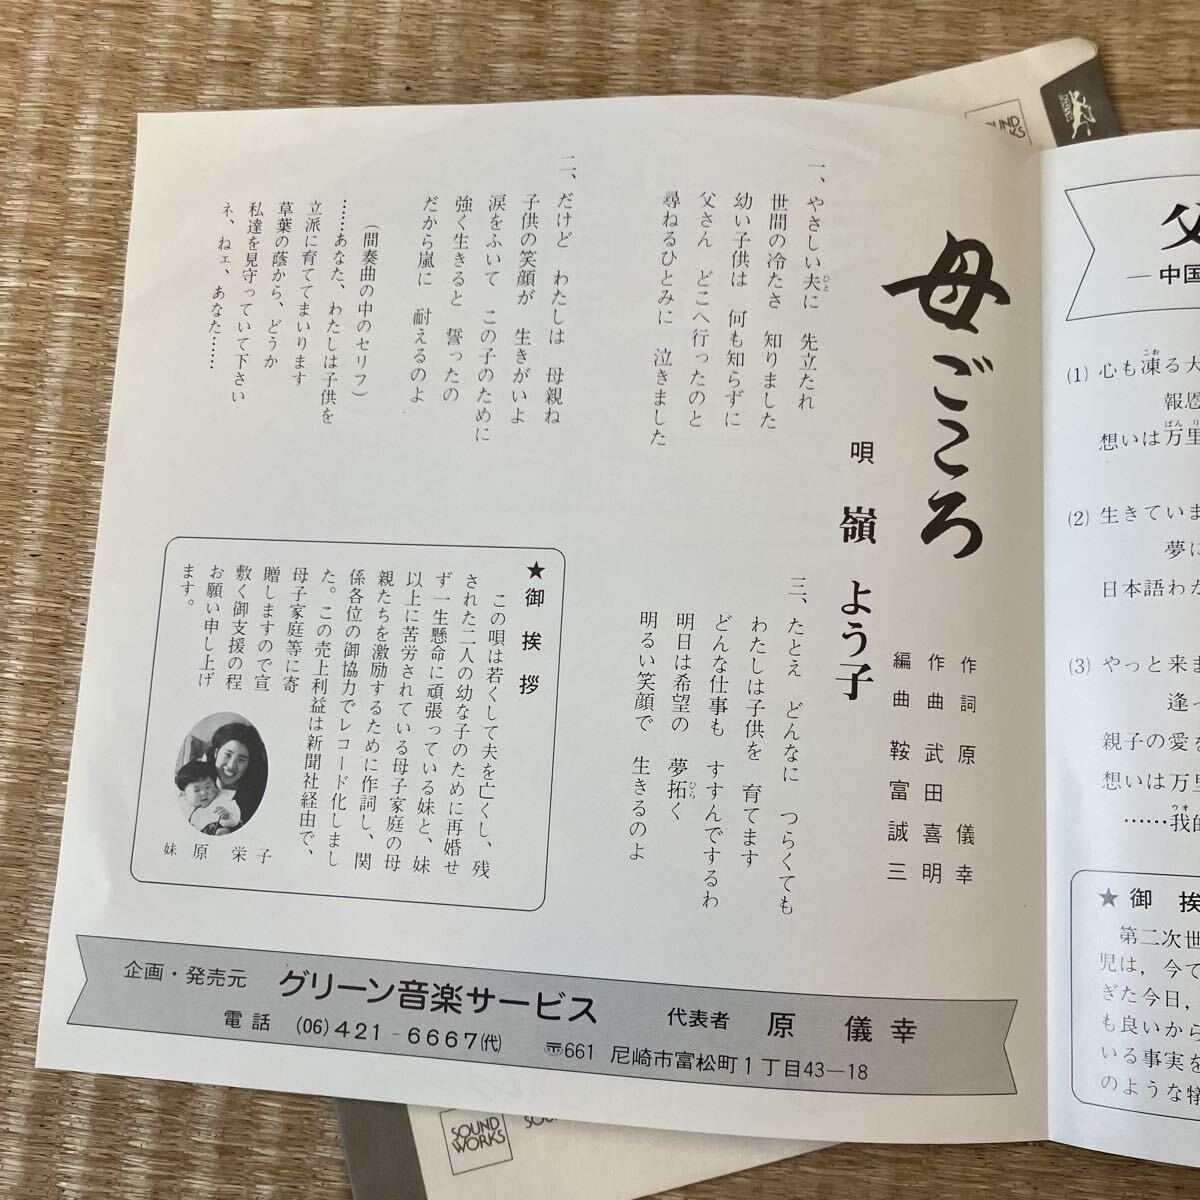 母ごころ
作詞 原 儀幸
作曲 武田喜明
編曲 鞍富誠三
唄 嶺 よう子
一、やさしい夫に 先立たれ
ひと
世間の冷たさ 知りました
幼い子供は 何も知らずに
父さん どこへ行ったのと
尋ねるひとみに 泣きました
二、だけど わたしは 母親ね
子供の笑顔が 生きがいよ
涙をふいて この子のために
強く生きると 誓ったの
だから嵐に 耐えるのよ
(間奏曲の中のセリフ)
……あなた、わたしは子供を
立派に育ててまいります
草葉の蔭から、どうか
私達を見守っていて下さい
ネ、ねェ、あなた……
三、たとえ どんなに つらくても
わたしは子供を 育てます
どんな仕事も すすんでするわ
明日は希望の 夢拓く
ひら
明るい笑顔で 生きるのよ
★御挨拶
この唄は若くして夫を亡くし、残
された二人の幼な子のために再婚せ
ず一生懸命に頑張っている妹と、妹
以上に苦労されている母子家庭の母
親たちを激励するために作詞し、関
係各位の御協力でレコード化しまし
た。この売上利益は新聞社経由で、
母子家庭等に寄
贈しますので宣
敷く御支援の程
お願い申し上げ
ます。
妹 原 栄子
企画・発売元 グリーン音楽サービス 代表者 原 儀幸
電話 (06)421-6667(代) 〒661 尼崎市富松町1丁目43—18
父
—中国
(1) 心も凍る大
こお
報恩
想いは万里
ばんり
(2) 生きていま
夢に
日本語わか
(3) やっと来ま
逢っ
親子の愛を
想いは万里
……我的
ウオ
★御挨
第二次世
児は，今で
ぎた今日，
も良いから
いる事実を
のような犠
SOUND
WORKS